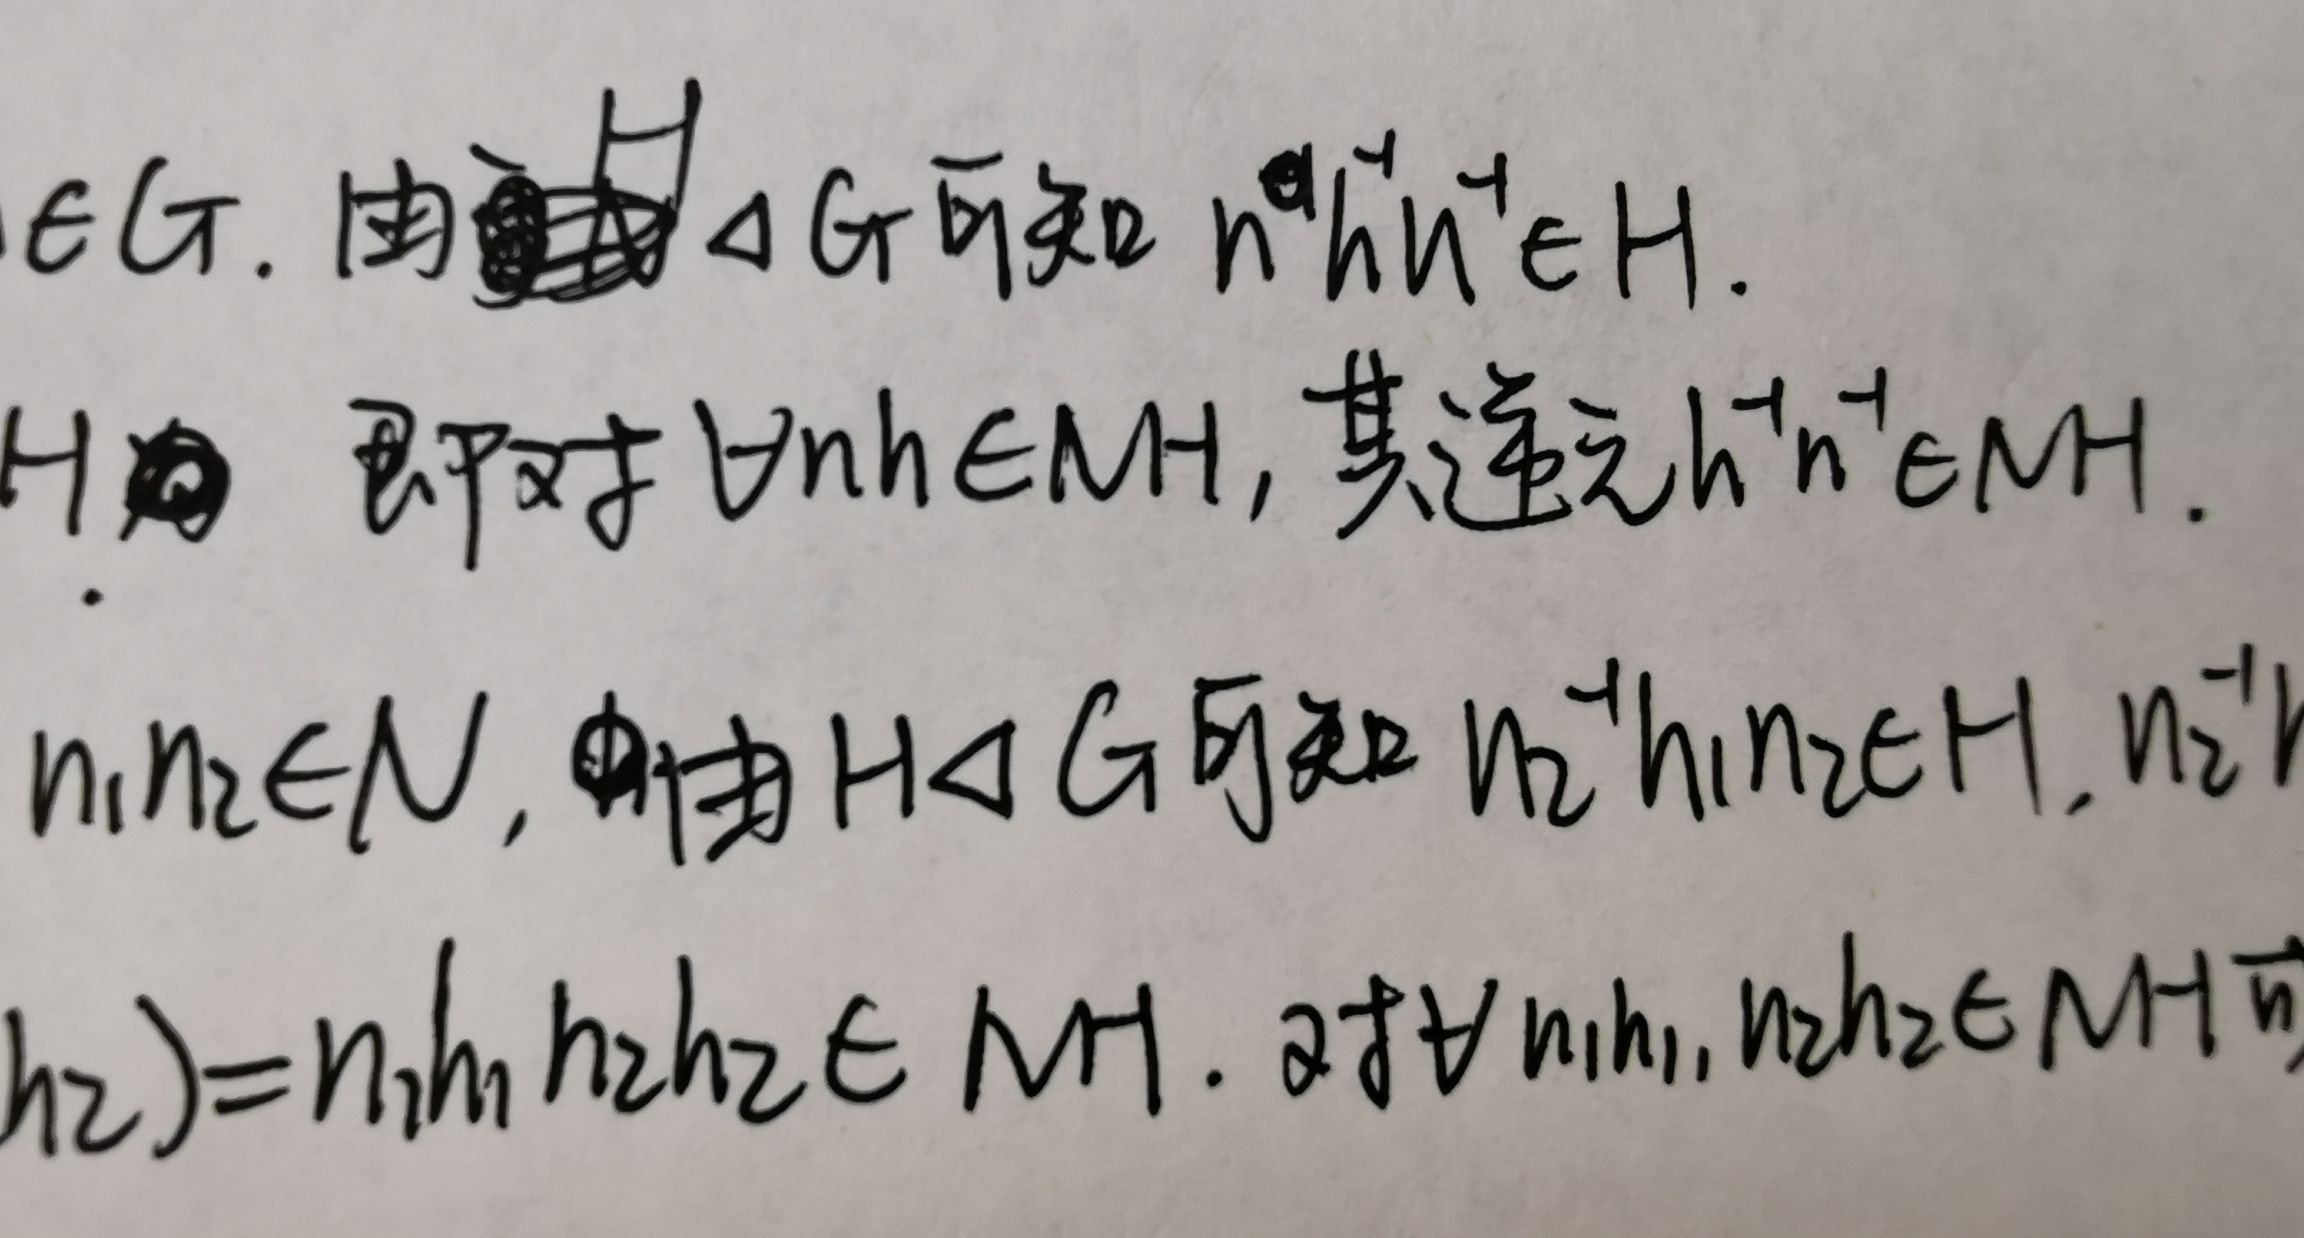 ∈G. 由H⊲G可知 nh⁻¹n⁻¹∈H.
H. 即对∀nh∈NH, 其逆元h⁻¹n⁻¹∈NH.
n₁n₂∈N, 由H⊲G可知 n₂⁻¹h₁n₂∈H, n₂⁻¹
h₂)=n₁h₁n₂h₂∈NH. 对∀n₁h₁, n₂h₂∈NH